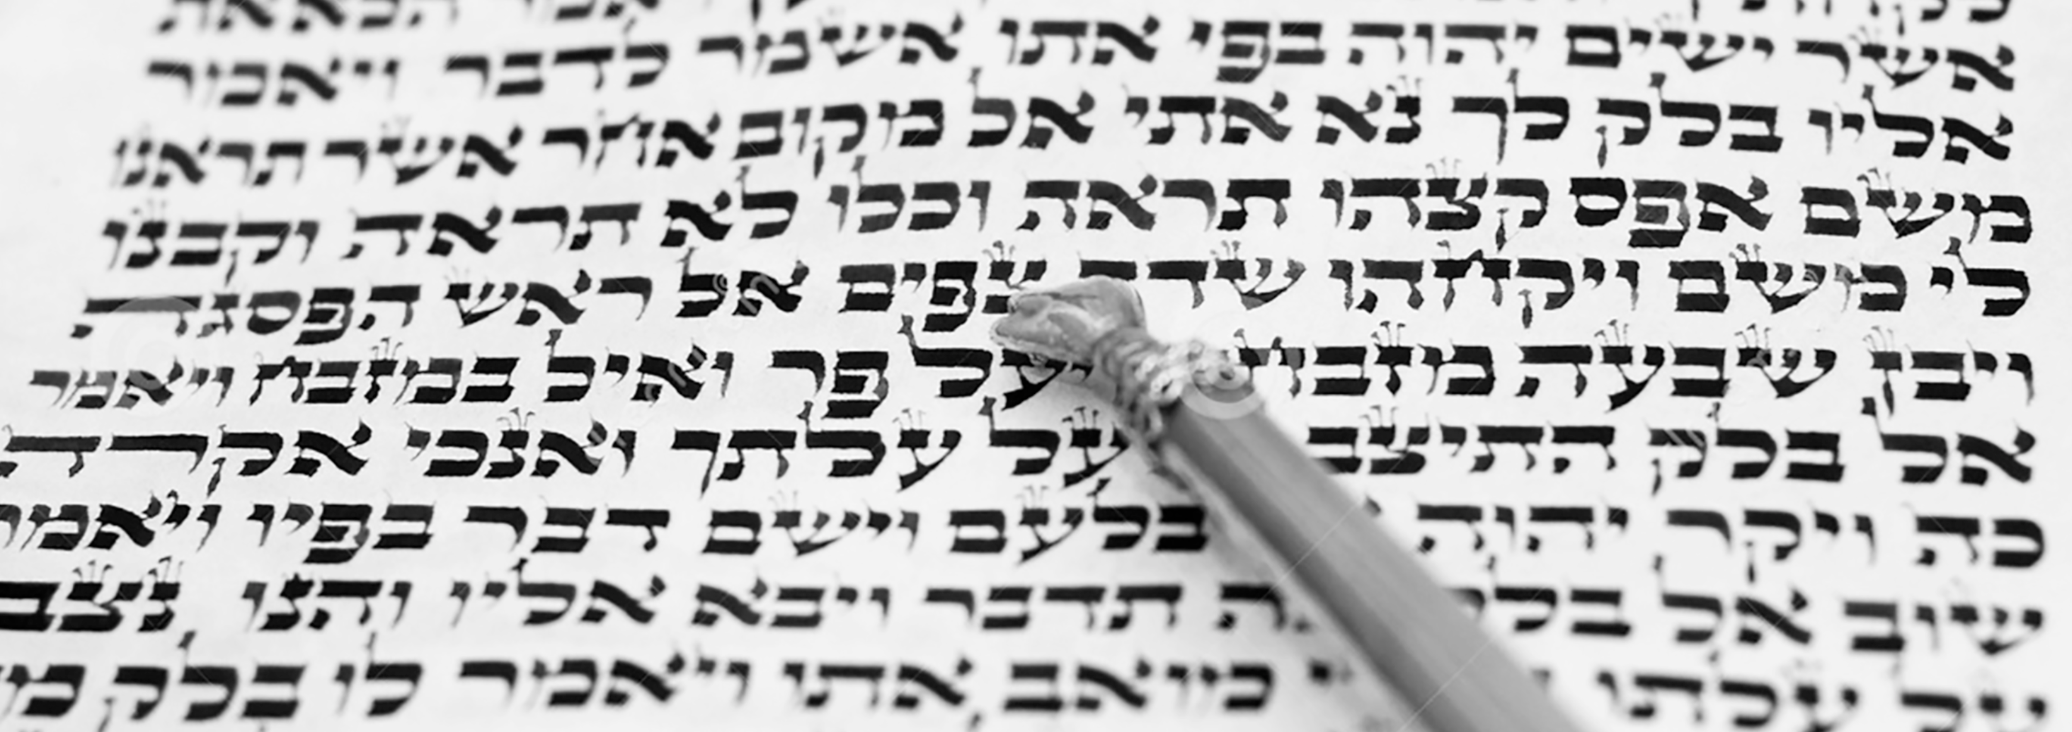 הלא את
אשר ישים יהוה בפי אתו אשמר לדבר ויאמר
אליו בלק לך נא אתי אל מקום אחר אשר תראנו
משם אפס קצהו תראה וכלו לא תראה וקבנו
לי משם ויקחהו שדה צפים אל ראש הפסגה
ויבן שבעה מזבחת ויעל פר ואיל במזבח ויאמר
אל בלק התיצב על עלתך ואנכי אקרה
כה ויקר יהוה בלעם וישם דבר בפיו ויאמר
שוב אל בלק תדבר ויבא אליו והנו נצב
על עלתו מואב אתו ויאמר לו בלק